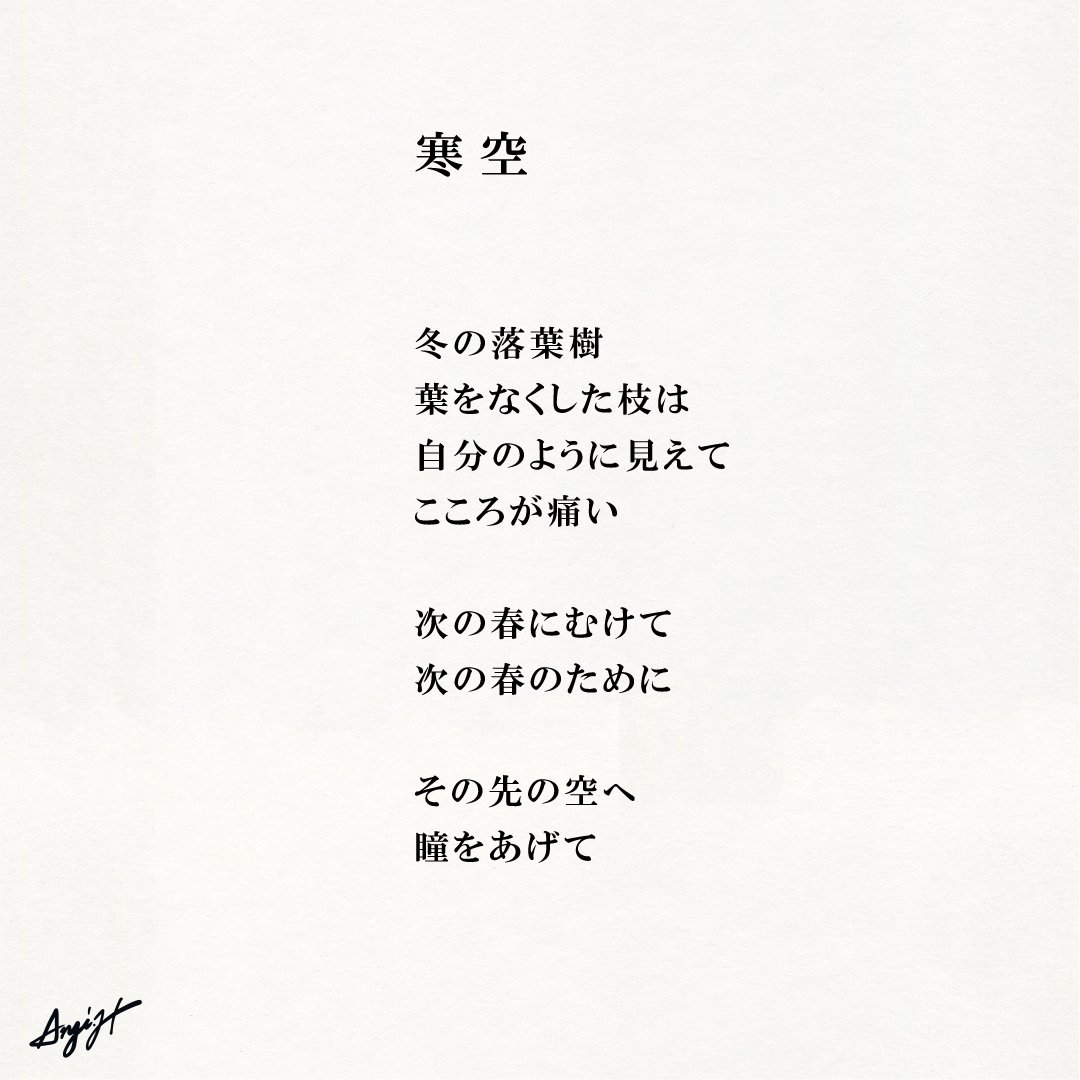 寒空
冬の落葉樹
葉をなくした枝は
自分のように見えて
こころが痛い
次の春にむけて
次の春のために
その先の空へ
瞳をあげて